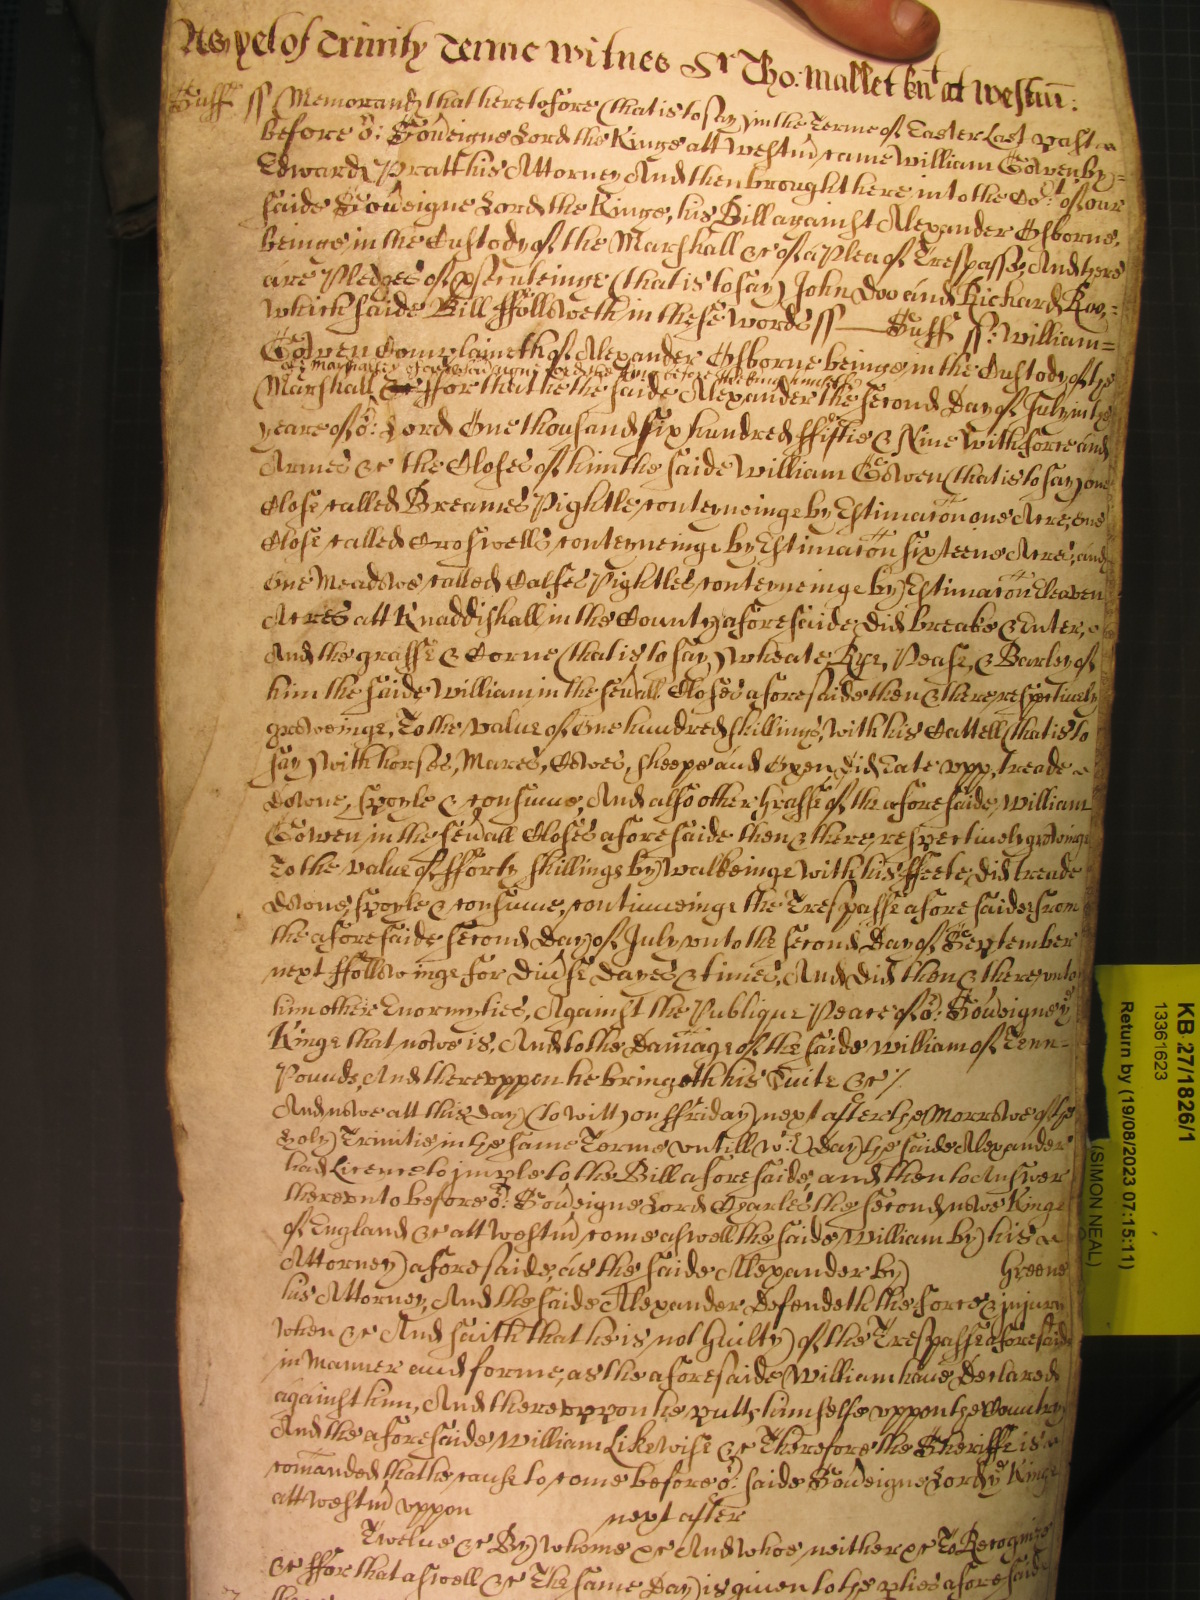 As yet of Trinity Terme Witnes Sr Tho: Mallet knt at Westm:
Suff ss Memorand that heretofore (that is to say) in the Terme of Easter Last past
before or: Soveigne Lord the Kinge att Westm came William Gowen by=
Edward Pratt his Attorney And then brought here into the Cort of our
saide Soveigne Lord the Kinge, his Bill against Alexander Osborne,
beinge in the Custody of the Marshall &c of a Plea of Trespasse, And there
are Pledges of psecuteinge (that is to say) John Doo and Richard Roo,=
which saide Bill ffolloweth in these words ss — Suff ss: William=
Gowen Complaineth of Alexander Osborne beinge in the Custody of the
Marshall ffor that he the saide Alexander the second Day of July in the
yeare of or: Lord One thousand six hundred ffiftie & Nine with force and
Armes &c the Closes of him the saide William Gowen (that is to say) one
Close called Breames Pightle conteyneinge by Estimacon one Acre, one
Close called Croswells conteyneinge by Estimacon sixteene Acres, and
One Meadowe called Calfes Pightles conteyneinge by Estimacon Eleaven
Acres att Knaddishall in the County aforesaide, did breake & Enter,
And the grasse & Corne (that is to say) wheate, Rye, Pease, & Barley of
him the saide William in the sevall Closes aforesaide then & there respectively
groweinge, To the value of One hundred shillings, with his Cattell (that is to
say) with horses, Mares, Cowes, sheepe and Oxen, did Eate vpp, treade
downe, spoyle & consume, And also other Grasse of the aforesaide William
Gowen in the sevall Closes aforesaide then & there respectively groweinge
To the value of fforty shillings by walkeinge with his ffeete, did treade
downe, spoyle & consume, continueinge the Trespasse aforesaide from
the aforesaide second Day of July vnto the second Day of September
next ffolloweinge for divse dayes & times, And did then & there vnto
him other Enormities, Against the Publique Peace of or: Soveigne ye
Kinge that nowe is, And to the Damage of the saide William of Tenn=
Pounds, And therevppon he bringeth his Suite &c /.
And nowe att this day (to witt) on ffriday next after the Morrowe of the
Holy Trinitie in the same Terme vntill wch day the saide Alexander
had Licence to imple to the Bill aforesaide, and then to Answer
therevnto before or: Soveigne Lord Charles the second nowe Kinge
of England &c att Westm come aswell the saide William by his
Attorney aforesaide, as the saide Alexander by Greene
his Attorney, And the saide Alexander Defendeth the force & injury
when &c And saith that he is not Guilty of the Trespasse aforesaide
in Manner and forme, as the aforesaide William have Declared
against him, And therevppon he putts himselfe vppon the Country
And the aforesaide William Likewise &c Therefore the Sheriffe is
comanded that he cause to come before or: saide Soveigne Lord ye Kinge
att Westm vppon next after
Twelve &c By whome &c And whoe neither &c To Recognize
&c ffor that aswell &c The same Day is given to the pties aforesaide
KB 27/1826/1
13361623
Return by (19/08/2023 07:15:11)
(SIMON NEAL)